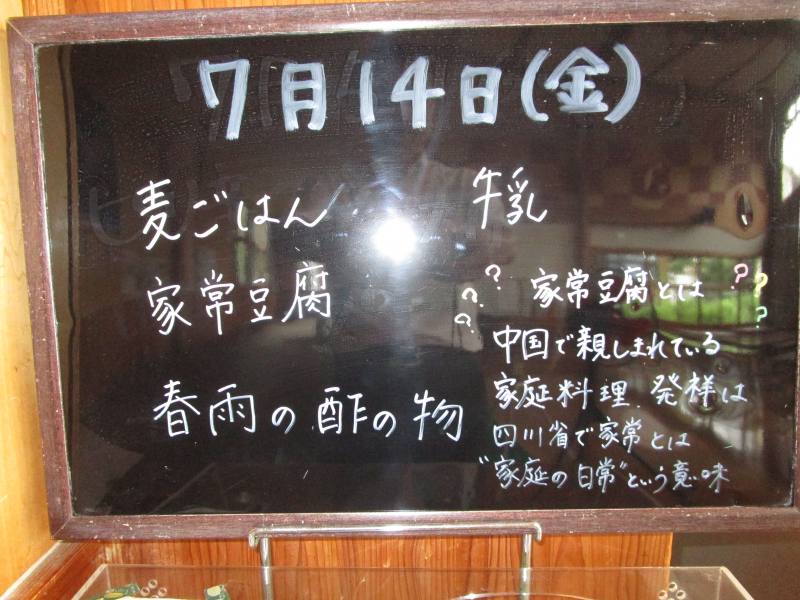 7月14日(金)
麦ごはん 牛乳
家常豆腐
春雨の酢の物
??? 家常豆腐とは???
中国で親しまれている
家庭料理.発祥は
四川省で家常とは
"家庭の日常"という意味